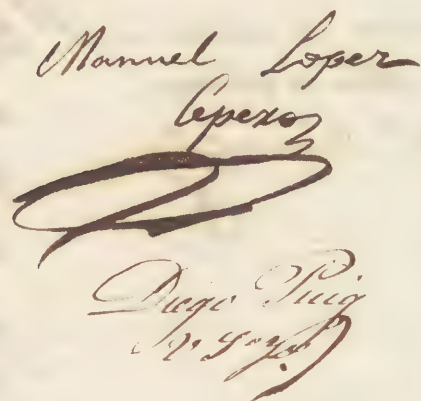 Manuel Lopez
Cepero
Diego Puig